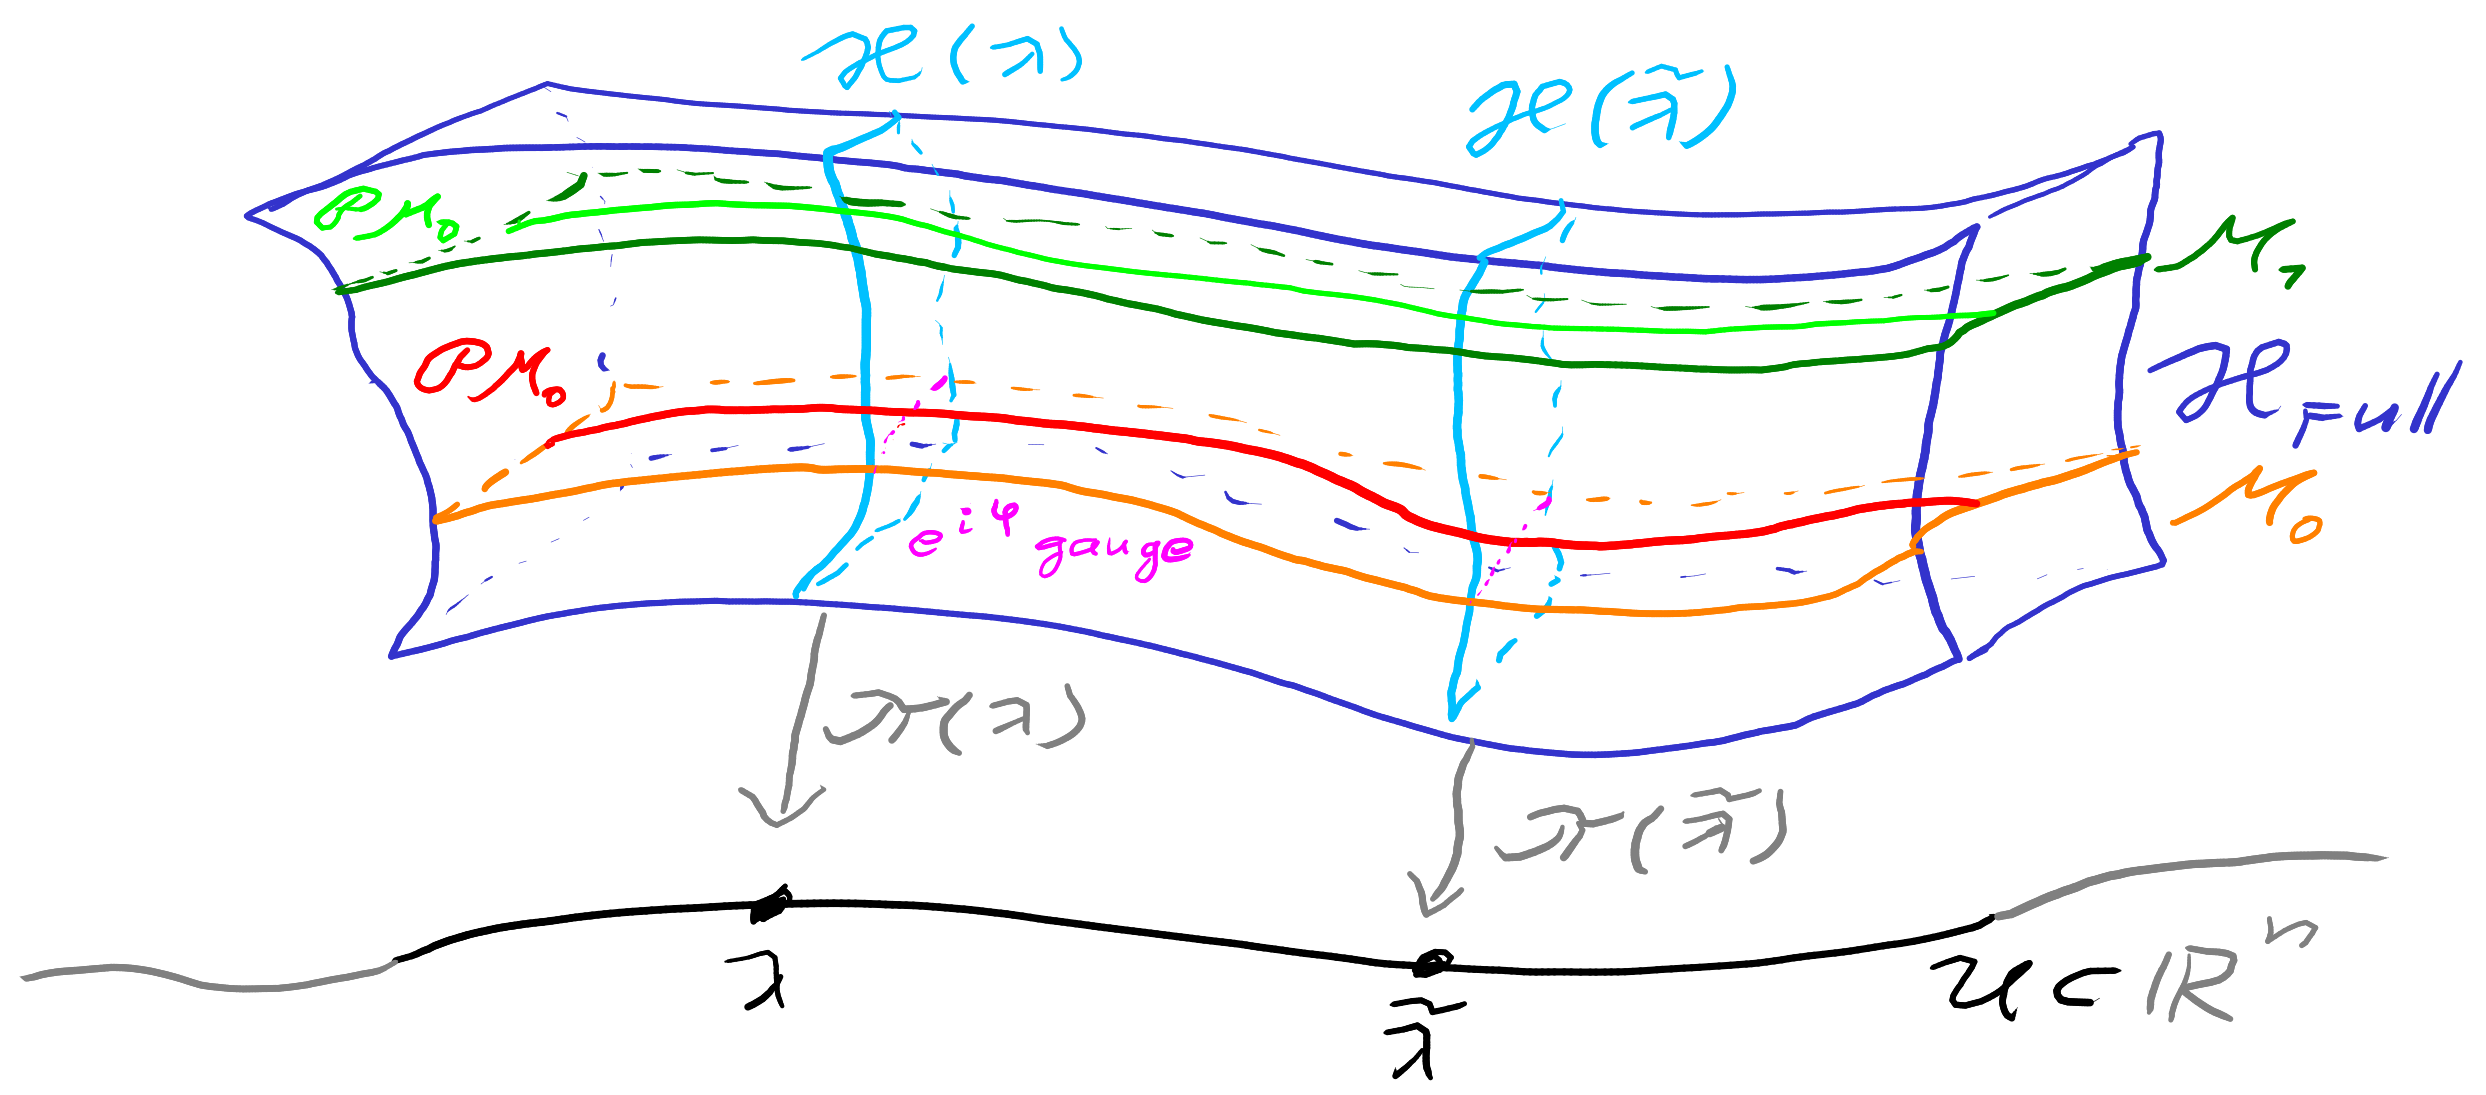 ℋ(λ)
ℋ(λ̃)
𝒫ℳ₀
ℳ₁
𝒫ℳ₀
ℋFull
ℳ₀
e^{iφ} gauge
π(λ)
π(λ̃)
λ
λ̃
𝒰 ⊂ ℝⁿ